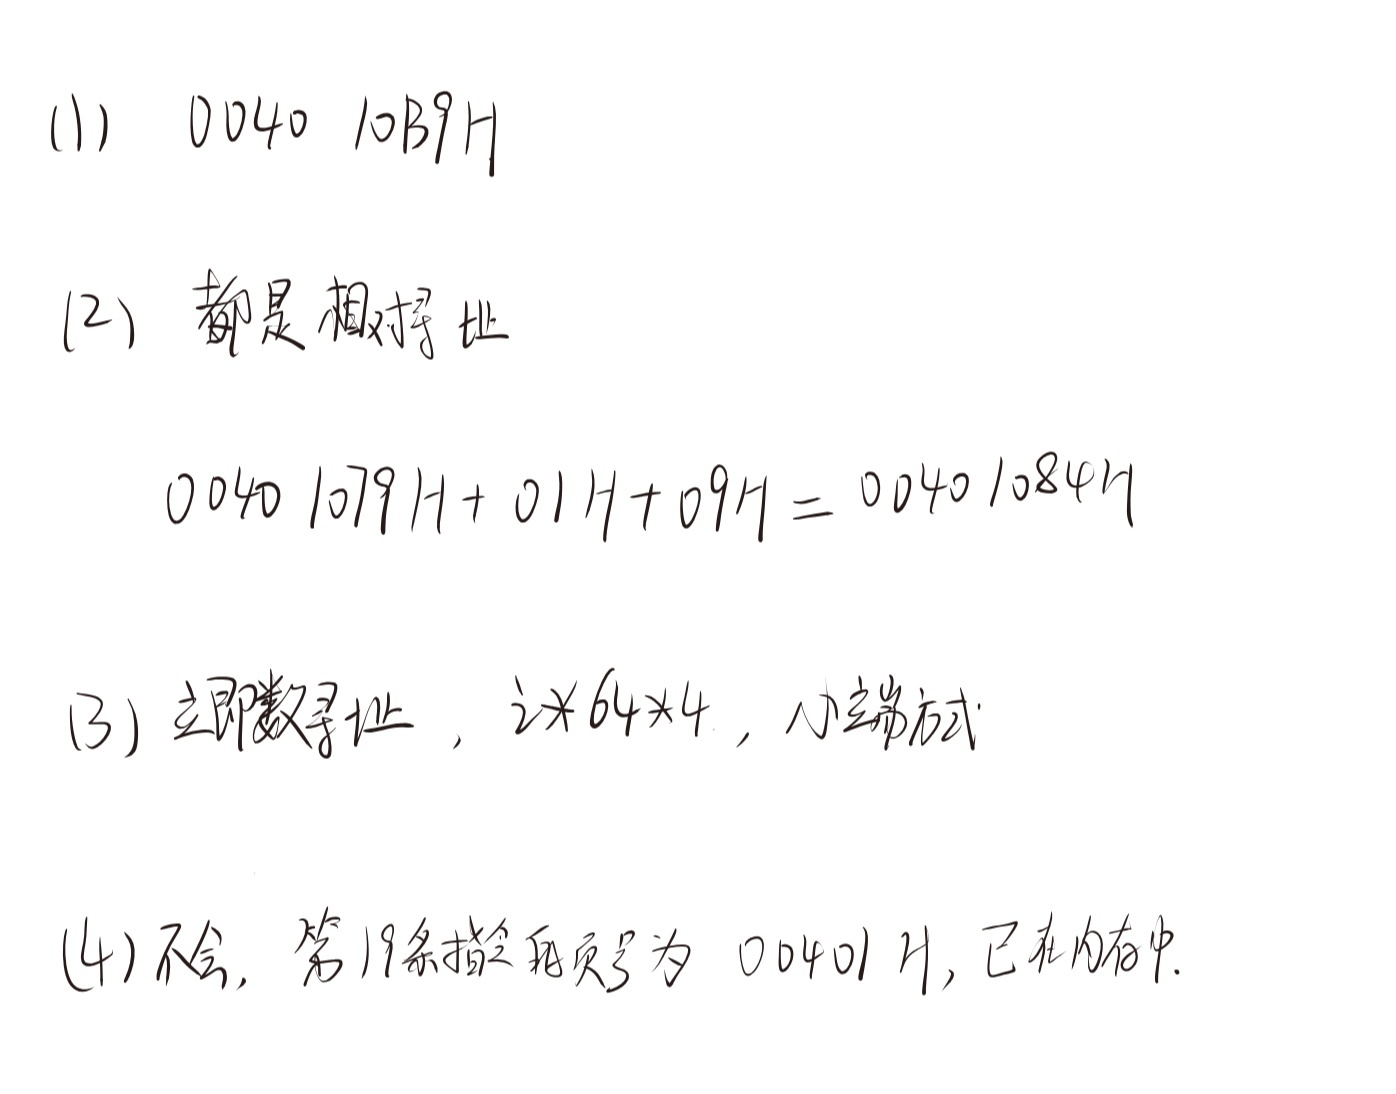 (1) 0040 10B9H
(2) 都是相对寻址
0040 1079H + 01H + 09H = 0040 1084H
(3) 立即数寻址, i*64*4, 小端方式
(4) 不会, 第19条指令 页号为 00401H, 已在内存中.